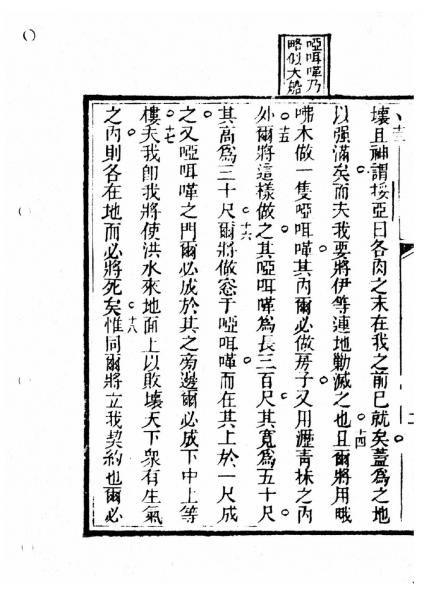 啞咡嘩乃
略似大船
壞十三且神謂挼亞曰各肉之末在我之前已就矣蓋為之地
以强滿矣而夫我要將伊等連地勦滅之也十四且爾將用哦
咈木做一隻啞咡嘩其內爾必做房子又用瀝青抹之內
外十五爾將這樣做之其啞咡嘩為長三百尺其寬為五十尺
其高為三十尺十六爾將做窓于啞咡嘩而在其上於一尺成
之又啞咡嘩之門爾必成於其之旁邊爾必成下中上等
樓十七夫我卽我將使洪水來地面上以敗壞天下衆有生氣
之內則各在地而必將死矣十八惟同爾將立我契約也爾必